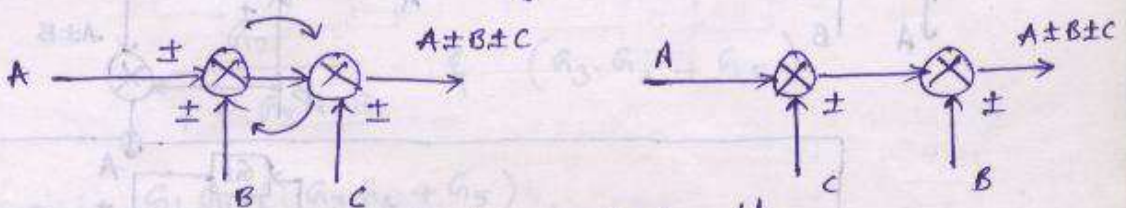 A ± ± B ± C A±B±C
A ± C ± B A±B±C